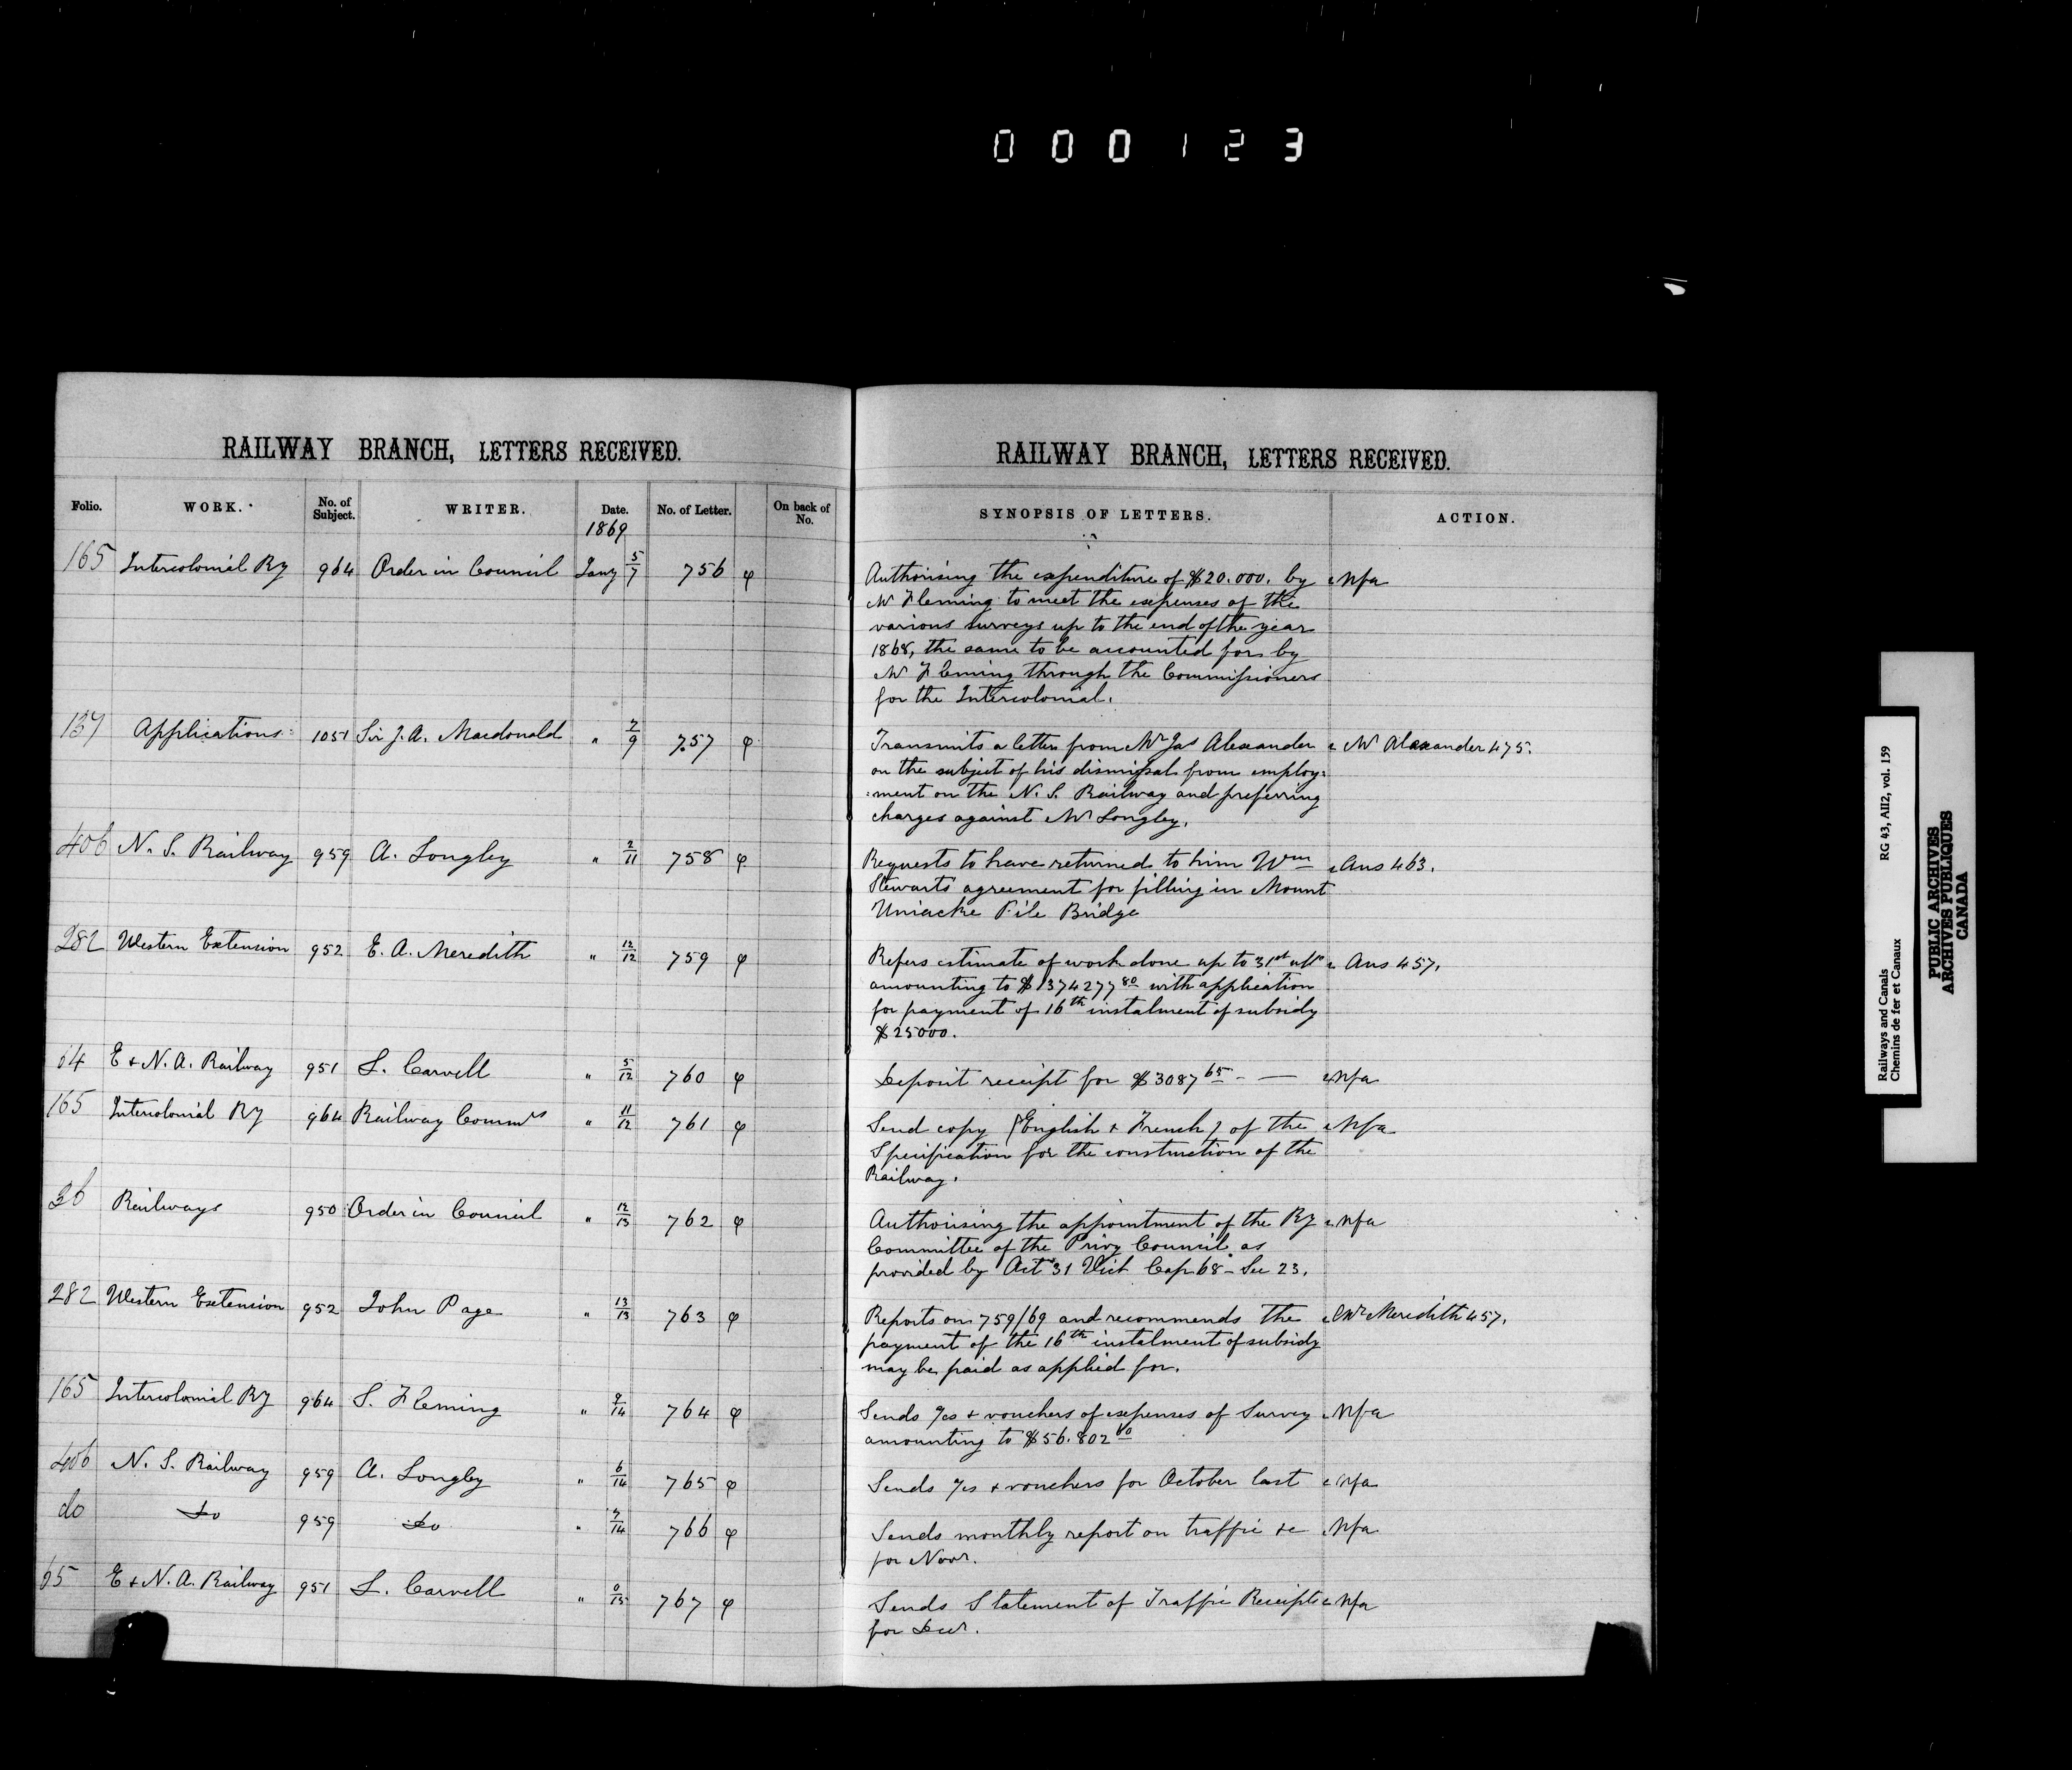 000123
RAILWAY BRANCH, LETTERS RECEIVED.
Folio. WORK. No. of Subject. WRITER. Date. No. of Letter. On back of No.
1869
165 Intercolonial Ry 964 Order in Council Jany 5/7 756 φ
137 Applications 1051 Sir J. A. Macdonald " 7/9 757 φ
406 N. S. Railway 959 A. Longley " 2/11 758 φ
282 Western Extension 952 E. A. Meredith " 12/12 759 φ
64 E & N. A. Railway 951 L. Carvell " 5/12 760 φ
165 Intercolonial Ry 964 Railway Commrs " 11/12 761 φ
36 Railways 950 Order in Council " 12/13 762 φ
282 Western Extension 952 John Page " 13/13 763 φ
165 Intercolonial Ry 964 S. Fleming " 9/14 764 φ
406 N. S. Railway 959 A. Longley " 6/14 765 φ
do Do 959 Do " 7/14 766 φ
65 E & N. A. Railway 951 L. Carvell " /15 767 φ
RAILWAY BRANCH, LETTERS RECEIVED.
SYNOPSIS OF LETTERS. ACTION.
Authorising the expenditure of $20.000. by Nfa
Mr Fleming to meet the expenses of the
various surveys up to the end of the year
1868, the same to be accounted for by
Mr Fleming through the Commissioners
for the Intercolonial.
Transmits a letter from Mr Jas Alexander Mr Alexander 475.
on the subject of his dismissal from employ=
=ment on the N. S. Railway and preferring
charges against Mr Longley.
Requests to have returned to him Wm Ans 463.
Stewarts agreement for filling in Mount
Uniacke Pile Bridge
Refers estimate of work done up to 31st ulto Ans 457.
amounting to $1374277 80 with application
for payment of 16th instalment of subsidy
$25000.
Deposit receipt for $3087 65 - — Nfa
Send copy (English & French) of the Nfa
Specification for the construction of the
Railway.
Authorising the appointment of the Ry Nfa
Committee of the Privy Council as
provided by Act 31 Vict Cap 68 - Sec 23.
Reports on 759/69 and recommends the Mr Meredith 457.
payment of the 16th instalment of subsidy
may be paid as applied for.
Sends a/cs & vouchers of expenses of Survey Nfa
amounting to $56.802
Sends a/cs & vouchers for October last Nfa
Sends monthly report on traffic &c Nfa
for Novr.
Sends Statement of Traffic Receipts Nfa
for Decr.
Railways and Canals RG 43, AII2, vol. 159
Chemins de fer et Canaux
PUBLIC ARCHIVES
ARCHIVES PUBLIQUES
CANADA